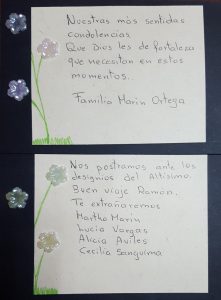 Nuestras más sentidas
condolencias
Que Dios les de fortaleza
que necesitan en estos
momentos.
Familia Marin Ortega
Nos postramos ante los
designios del Altísimo.
Buen viaje Ramon.
Te extrañaremos
Martha Marin
Lucia Vargas
Alicia Aviles
Cecilia Sanguima